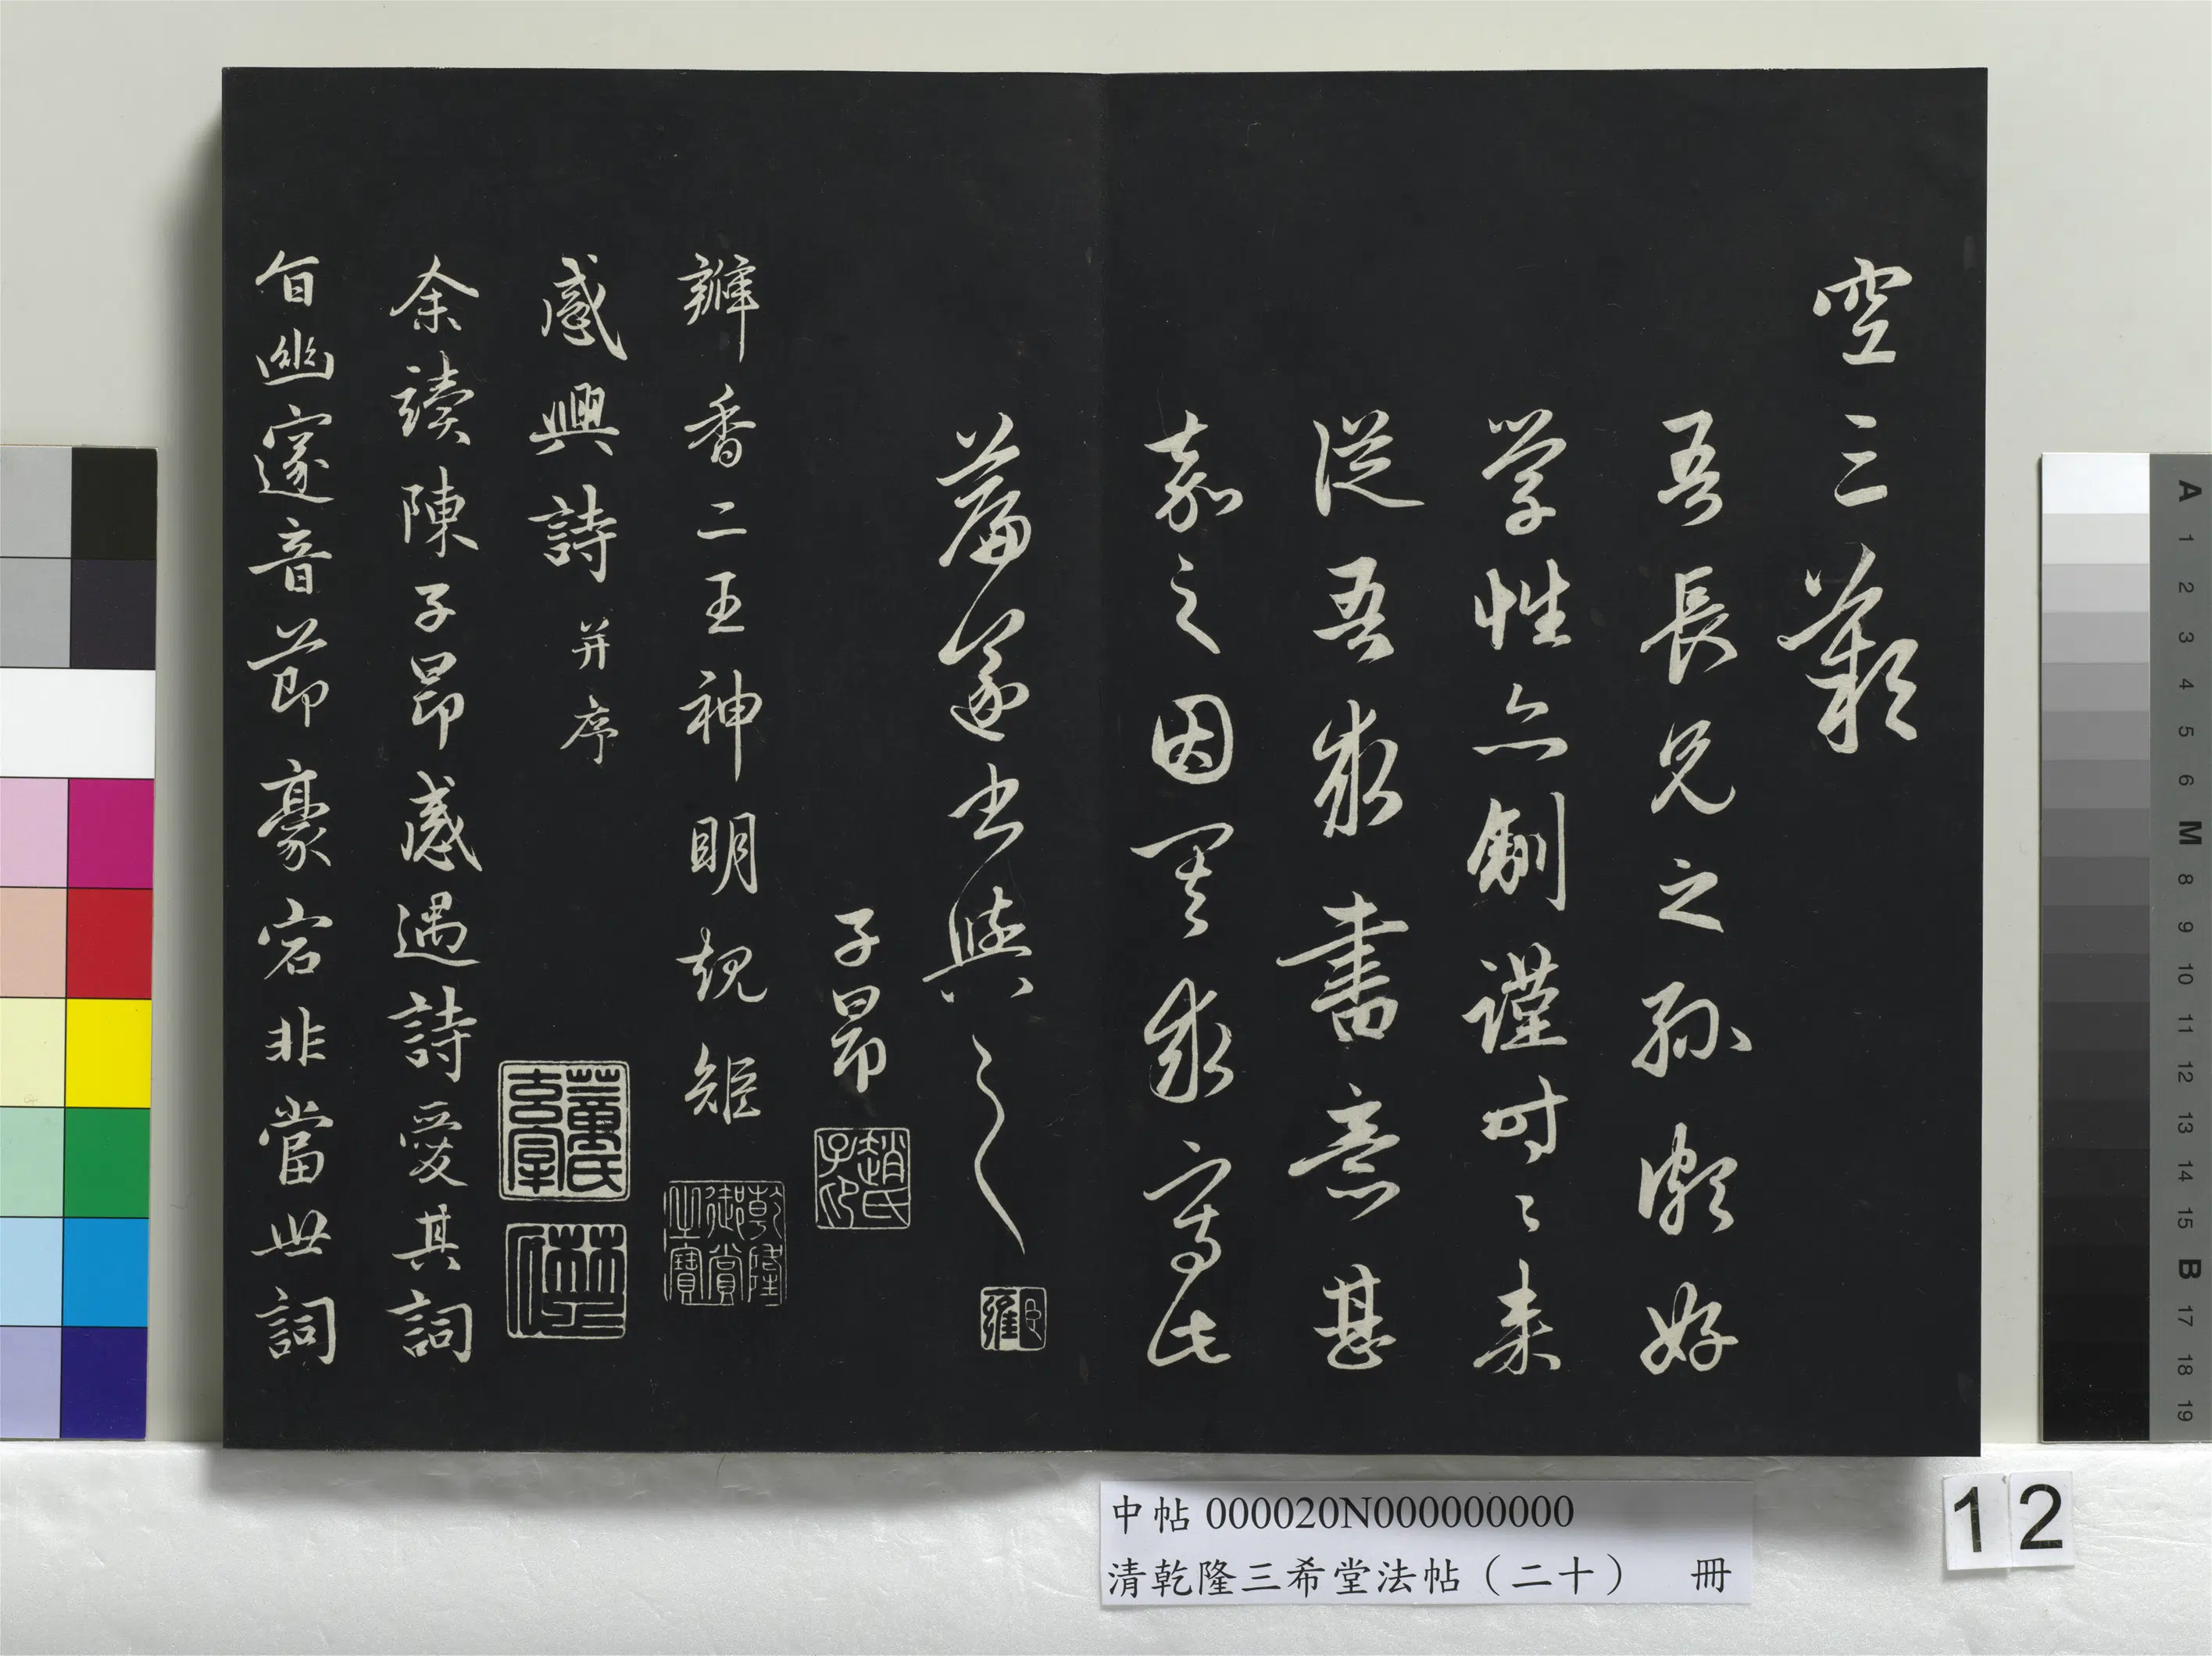 空三歎
吾長兄之孫頗好
学性亦剛謹時〻来
從吾求書意甚
嘉之因其求寫此
篇遂書與之
子昂
趙氏子昂
瓣香二王神明規矩
乾隆御賞之寶
感興詩并序
余讀陳子昂感遇詩愛其詞
旨幽邃音節豪宕非當世詞
中帖 000020N000000000
清乾隆三希堂法帖（二十） 冊
12
A 1 2 3 4 5 6 M 8 9 10 11 12 13 14 15 B 17 18 19